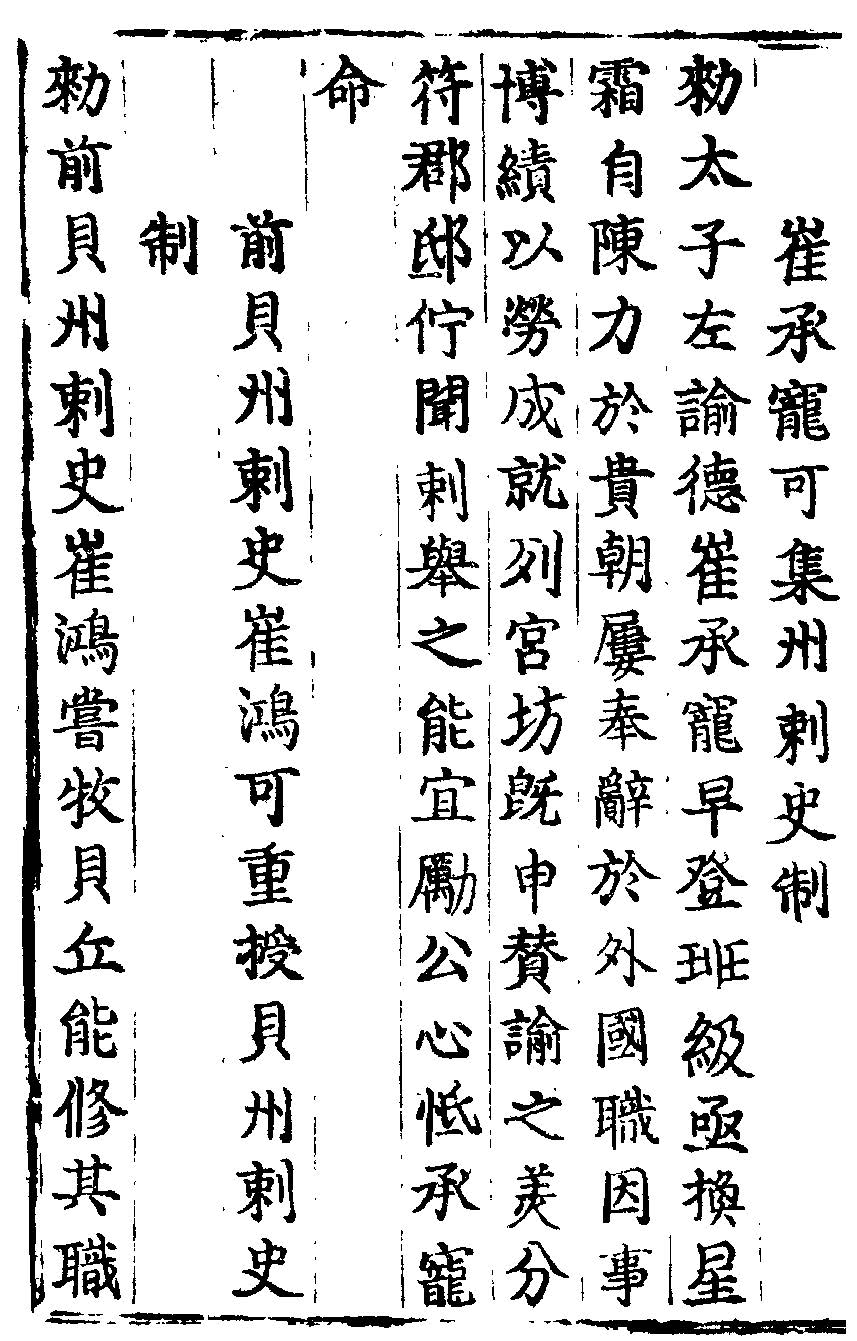 崔承寵可集州刺史制
勑太子左諭德崔承寵早登班級亟換星
霜自陳力於貴朝屢奉辭於外國職因事
博績以勞成就列宮坊旣申賛諭之美分
符郡邸佇聞刺舉之能宜勵公心怟承寵
命
前貝州刺史崔鴻可重授貝州刺史
制
勑前貝州刺史崔鴻嘗牧貝丘能修其職